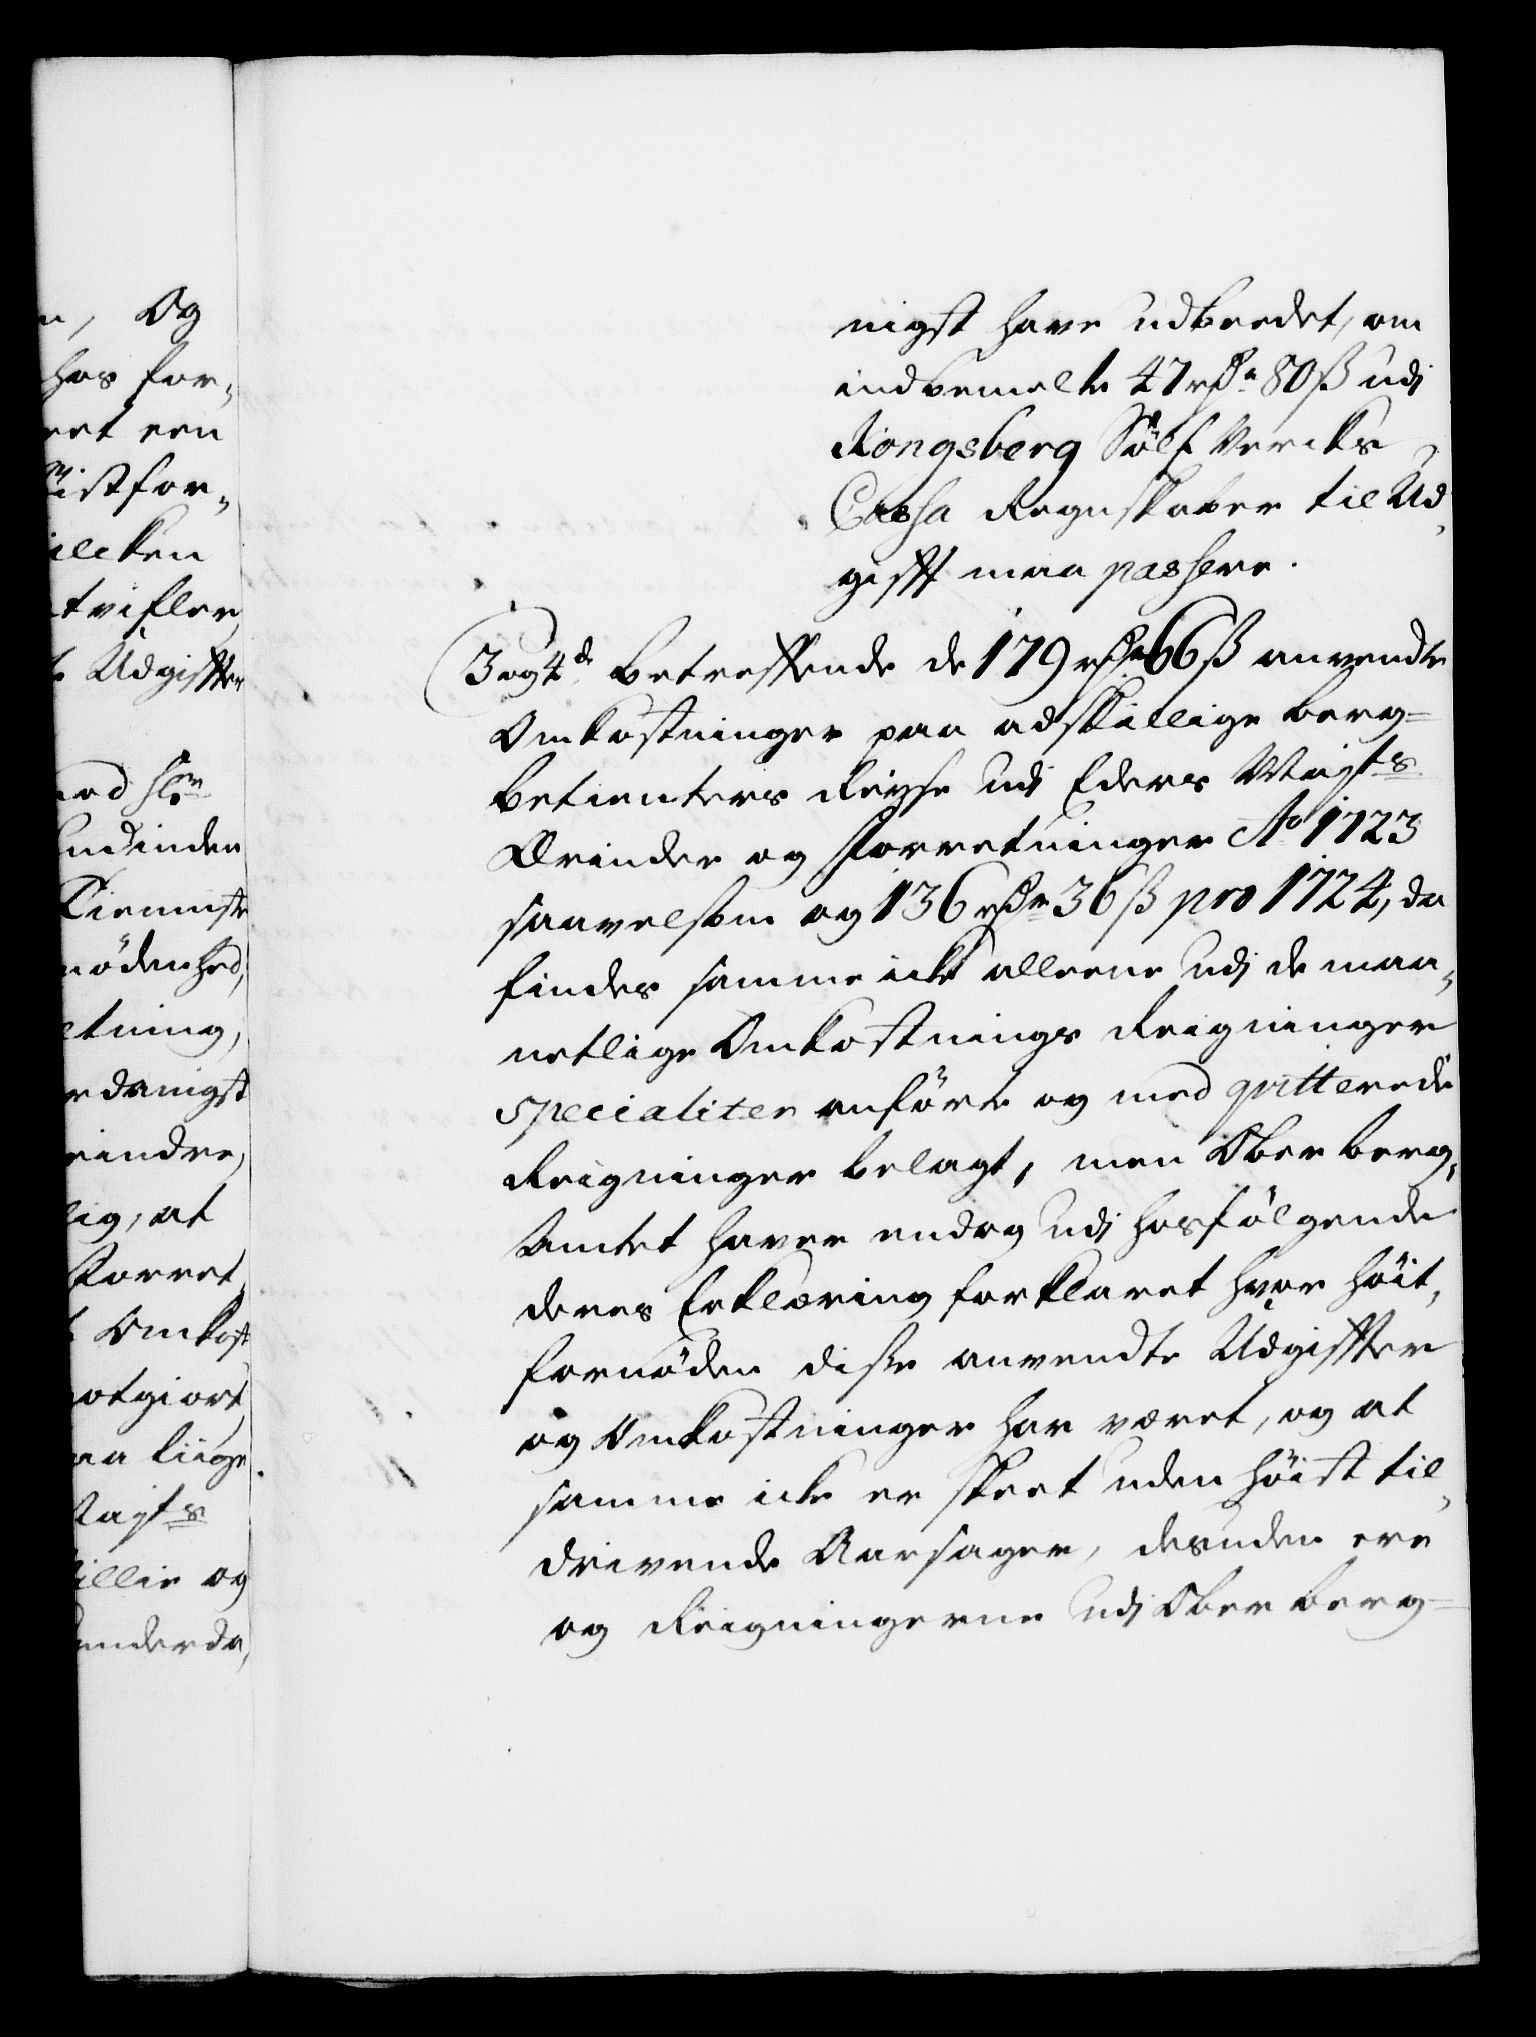 n, Og
hos for,,
ret een
Mistfor,,
ilcken
tvifler
Udgiffter
med hr
indinden
Tienniste
nödenhed,
etning,
rdanigst
rindre,
lig, at
Forret,,
Omkost
otgiort
aa kiige
Mayts
illie og
underda,,
nigst have udbeedet, om
indbemelte 47 rdr 80 ß udj
Kongsberg Sölf Vercks
Cassa Regnskaber til Ud,,
gifft maa passere.
3 og 4de betreffende de 179 rdr 66 ß anvendte
Omkostninger paa adskillige berg=
betienters Reyse udj Eders Mayts
Ærinder og Forretninger Ao 1723
saavelsom og 136 rdr 36 ß pro 1724, da
findes samme icke alleene udj de maa,,
netlige Omkostnings Reigninger
specialiter anförte og med qvitterede
Reigninger belagt, men Ober berg,,
Amtet haver endog udj hosfölgende
deres Erklæring forklaret hvor höit,,
fornöden disse anvendte Udgiffter
og Omkostninger har været, og at
samme icke er skeet uden höist til,,
drivende Aarsager, desuden ere
og Reigningerne udj Ober berg=